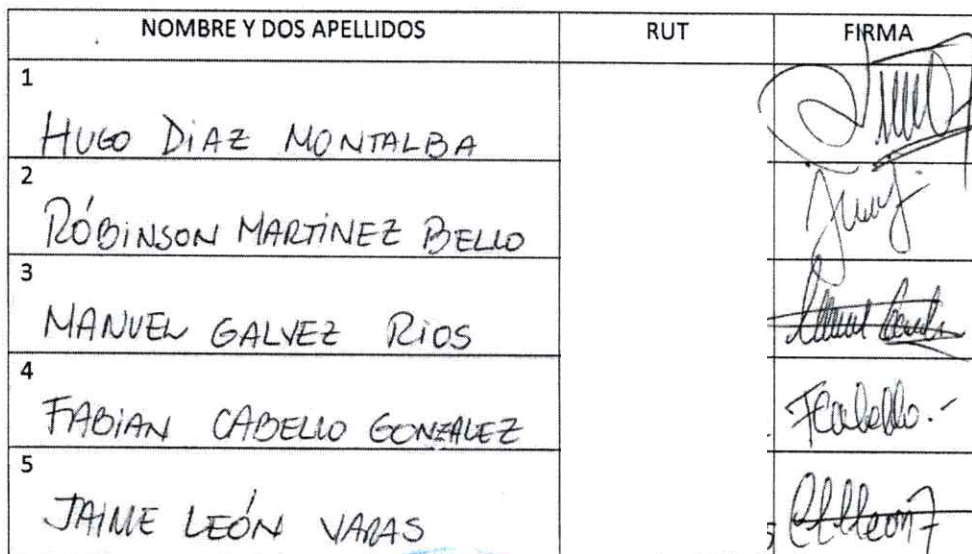 NOMBRE Y DOS APELLIDOS RUT FIRMA
1
HUGO DiAZ MONTALBA
2
RÓBiNSON MARTiNEZ BELLO
3
MANUEL GALVEZ RiOS
4
FABiAN CABELLO GONZALEZ
FCabello.-
5
JAIME LEÓN VARAS